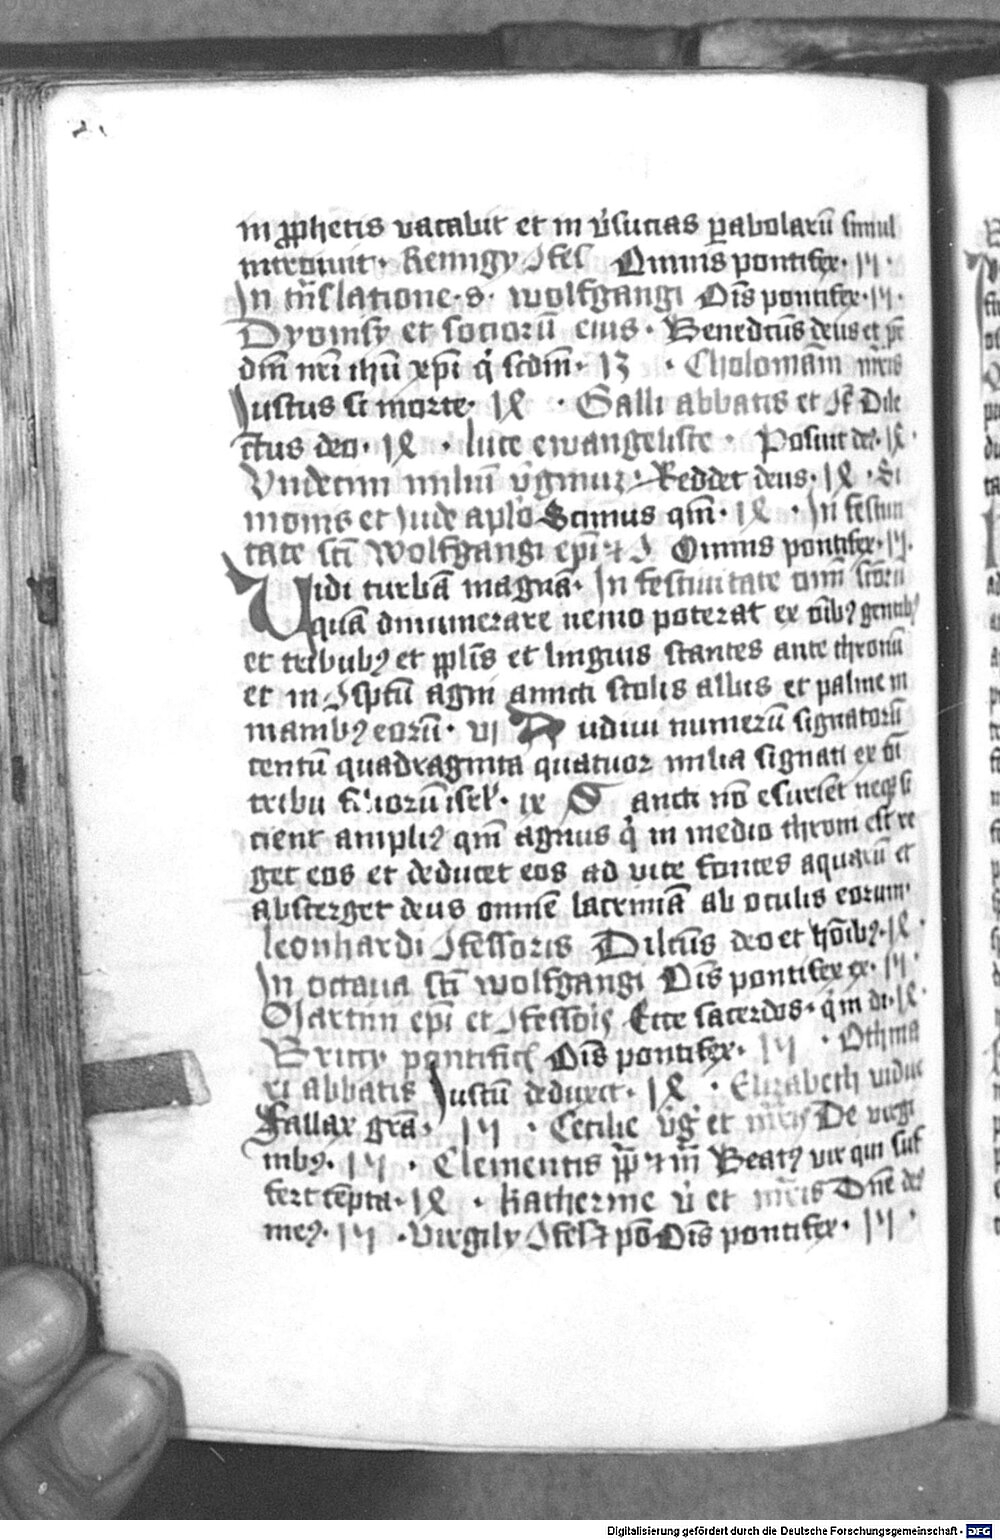 in ꝓphetis vacabit et in v̄sucias ꝑabolarū simul
introiuit · Remigy ɔfes̄ Omnis pontifex · 14 ·
In trn̄slatione · s · wolfgangi Oīs pontifex · 14 ·
Dyonisy et sociorū eius · Benedcūs deus et pr̄
dm̄ nr̄i ihū xp̄i q̄ scdm̄ · 13 · Cholomānī mr̄is
Justus si morte · 19 · Galli abbatis et ɔf̄ Dile
ctus deo · 19 · luce ewangeliste · Posuit de⁹ · 19 ·
Vndecim miliū v̄ginuꝫ · Reddet deus · 19 · Si
monis et Jude aplō Scimus qm̄ · 19 · In festiui
tate sc̄ti Wolfgangi ep̄i et ɔ Omnis pontifex · 14 ·
Uidi turbā magnā · In festiuitate om̄ sc̄orū
quā dinumerare nemo poterat ex oīb⁹ gentib⁹
et tribub⁹ et ꝓplis et linguis stantes ante thronū
et in ɔspctū agni amicti stolis albis et palme in
manib⁹ eorū · vi Audiui numerū signatorū
centū quadraginta quatuor milia signati ex oī
tribu filiorū isrl̄ · ix Sancti nō esurīet neqꝫ si
cient ampli⁹ qm̄ agnus q̄ in medio throni est re
get eos et deducet eos ad vite fontes aquarū et
absterget deus omnē lacrimā ab oculis eorum ·
leonhardi ɔfessoris Dilcūs deo et hoīb⁹ · 19 ·
In octaua sc̄ti wolfgangi Oīs pontifex ex · 14 ·
Martini ep̄i et ɔfessoris Ecce sacerdos · q̄ in di · 19 ·
Briccy pontific̄ Oīs pontifex · 14 · Othma
ri abbatis Justū deduxit · 19 · Elizabeth vidue
Fallax grā · 14 · Cecilie v̄g et mr̄is De virgi
nib⁹ · 14 · Clementis pp̄ et m̄ Beat⁹ vir qui suf
fert tēpta · 19 · katherine v̄ et mr̄is Dn̄e de⁹
me⁹ · 14 · Virgily ɔfes̄ et pō Oīs pontifex · 14 ·
Digitalisierung gefördert durch die Deutsche Forschungsgemeinschaft · DFG